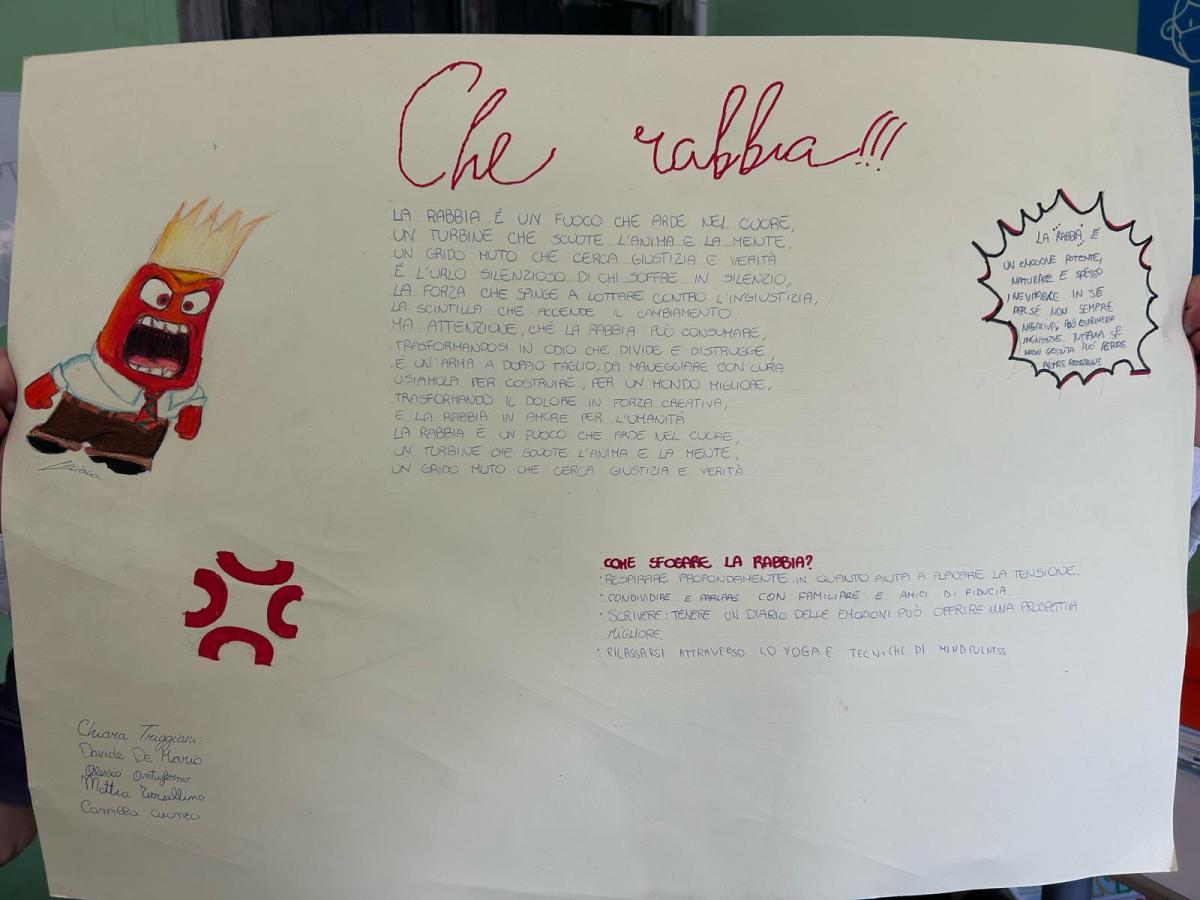 Che rabbia!!!
LA RABBIA É UN FUOCO CHE ARDE NEL CUORE,
UN TURBINE CHE SCUOTE L'ANIMA E LA MENTE,
UN GRIDO MUTO CHE CERCA GIUSTIZIA E VERITÀ
É L'URLO SILENZIOSO DI CHI SOFFRE IN SILENZIO,
LA FORZA CHE SPINGE A LOTTARE CONTRO L'INGIUSTIZIA,
LA SCINTILLA CHE ACCENDE IL CAMBIAMENTO.
MA ATTENZIONE, CHÉ LA RABBIA PUÒ CONSUMARE,
TRASFORMANDOSI IN ODIO CHE DIVIDE E DISTRUGGE,
È UN'ARMA A DOPPIO TAGLIO, DA MANEGGIARE CON CURA
USIAMOLA PER COSTRUIRE, PER UN MONDO MIGLIORE,
TRASFORMANDO IL DOLORE IN FORZA CREATIVA,
E LA RABBIA IN AMORE PER L'UMANITÀ
LA RABBIA È UN FUOCO CHE ARDE NEL CUORE,
UN TURBINE CHE SCUOTE L'ANIMA E LA MENTE,
UN GRIDO MUTO CHE CERCA GIUSTIZIA E VERITÀ
LA RABBIA È
UN EMOZIONE POTENTE,
NATURALE E SPESSO
INEVITABILE. IN SÉ
PER SÉ NON SEMPRE
NEGATIVA, PUÒ ESPRIMERE
SE
NON GESTITA PUÒ
ALTRE
COME SFOGARE LA RABBIA?
• RESPIRARE PROFONDAMENTE IN QUANTO AIUTA A PLACARE LA TENSIONE.
• CONDIVIDIRE E PARLARE CON FAMILIARE E AMICI DI FIDUCIA.
• SCRIVERE: TENERE UN DIARIO DELLE EMOZIONI PUÒ OFFRIRE UNA PROSPETTIVA
MIGLIORE.
• RILASSARSI ATTRAVERSO LO YOGA E TECNICHE DI MINDFULNESS
Chiara Triggiani
Davide De Mario
Alessio
Mattia
Camilla Cuonzo